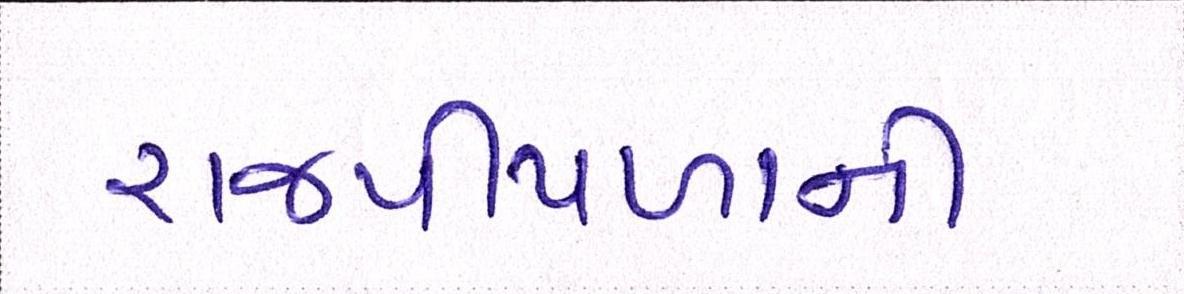 રાજપીપળાની